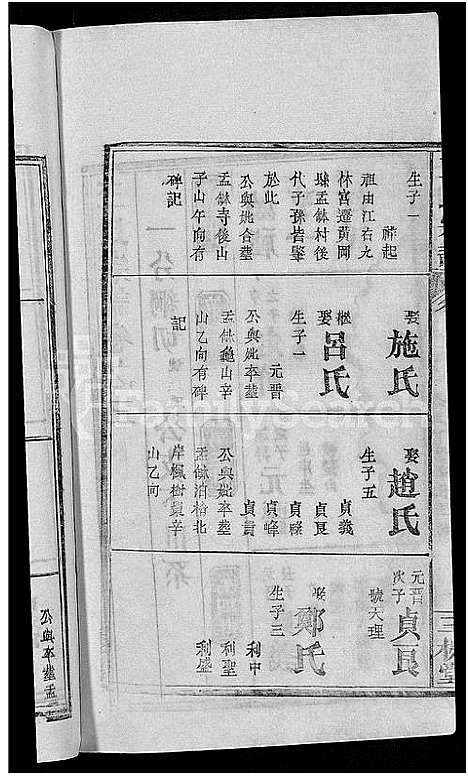 生子一
祥起
祖由江右九
林宮遷黃岡
縣孟缽村後
代子孫皆肇
於此
公與妣合塟
孟缽寺後山
子山午向有
碑記
娶施氏
繼娶呂氏
生子一
元晋
公與妣卒塟
孟缽龜山辛
山乙向有碑
記
娶趙氏
生子五
貞義
貞良
貞祿
貞峰
貞貴
公與妣卒塟
孟缽泊枱北
岸楓樹貟辛
山乙向
元晋次子
貞良
號大理
娶鄭氏
生子三
利中
利聖
利盛
三槐堂
公與卒塟孟